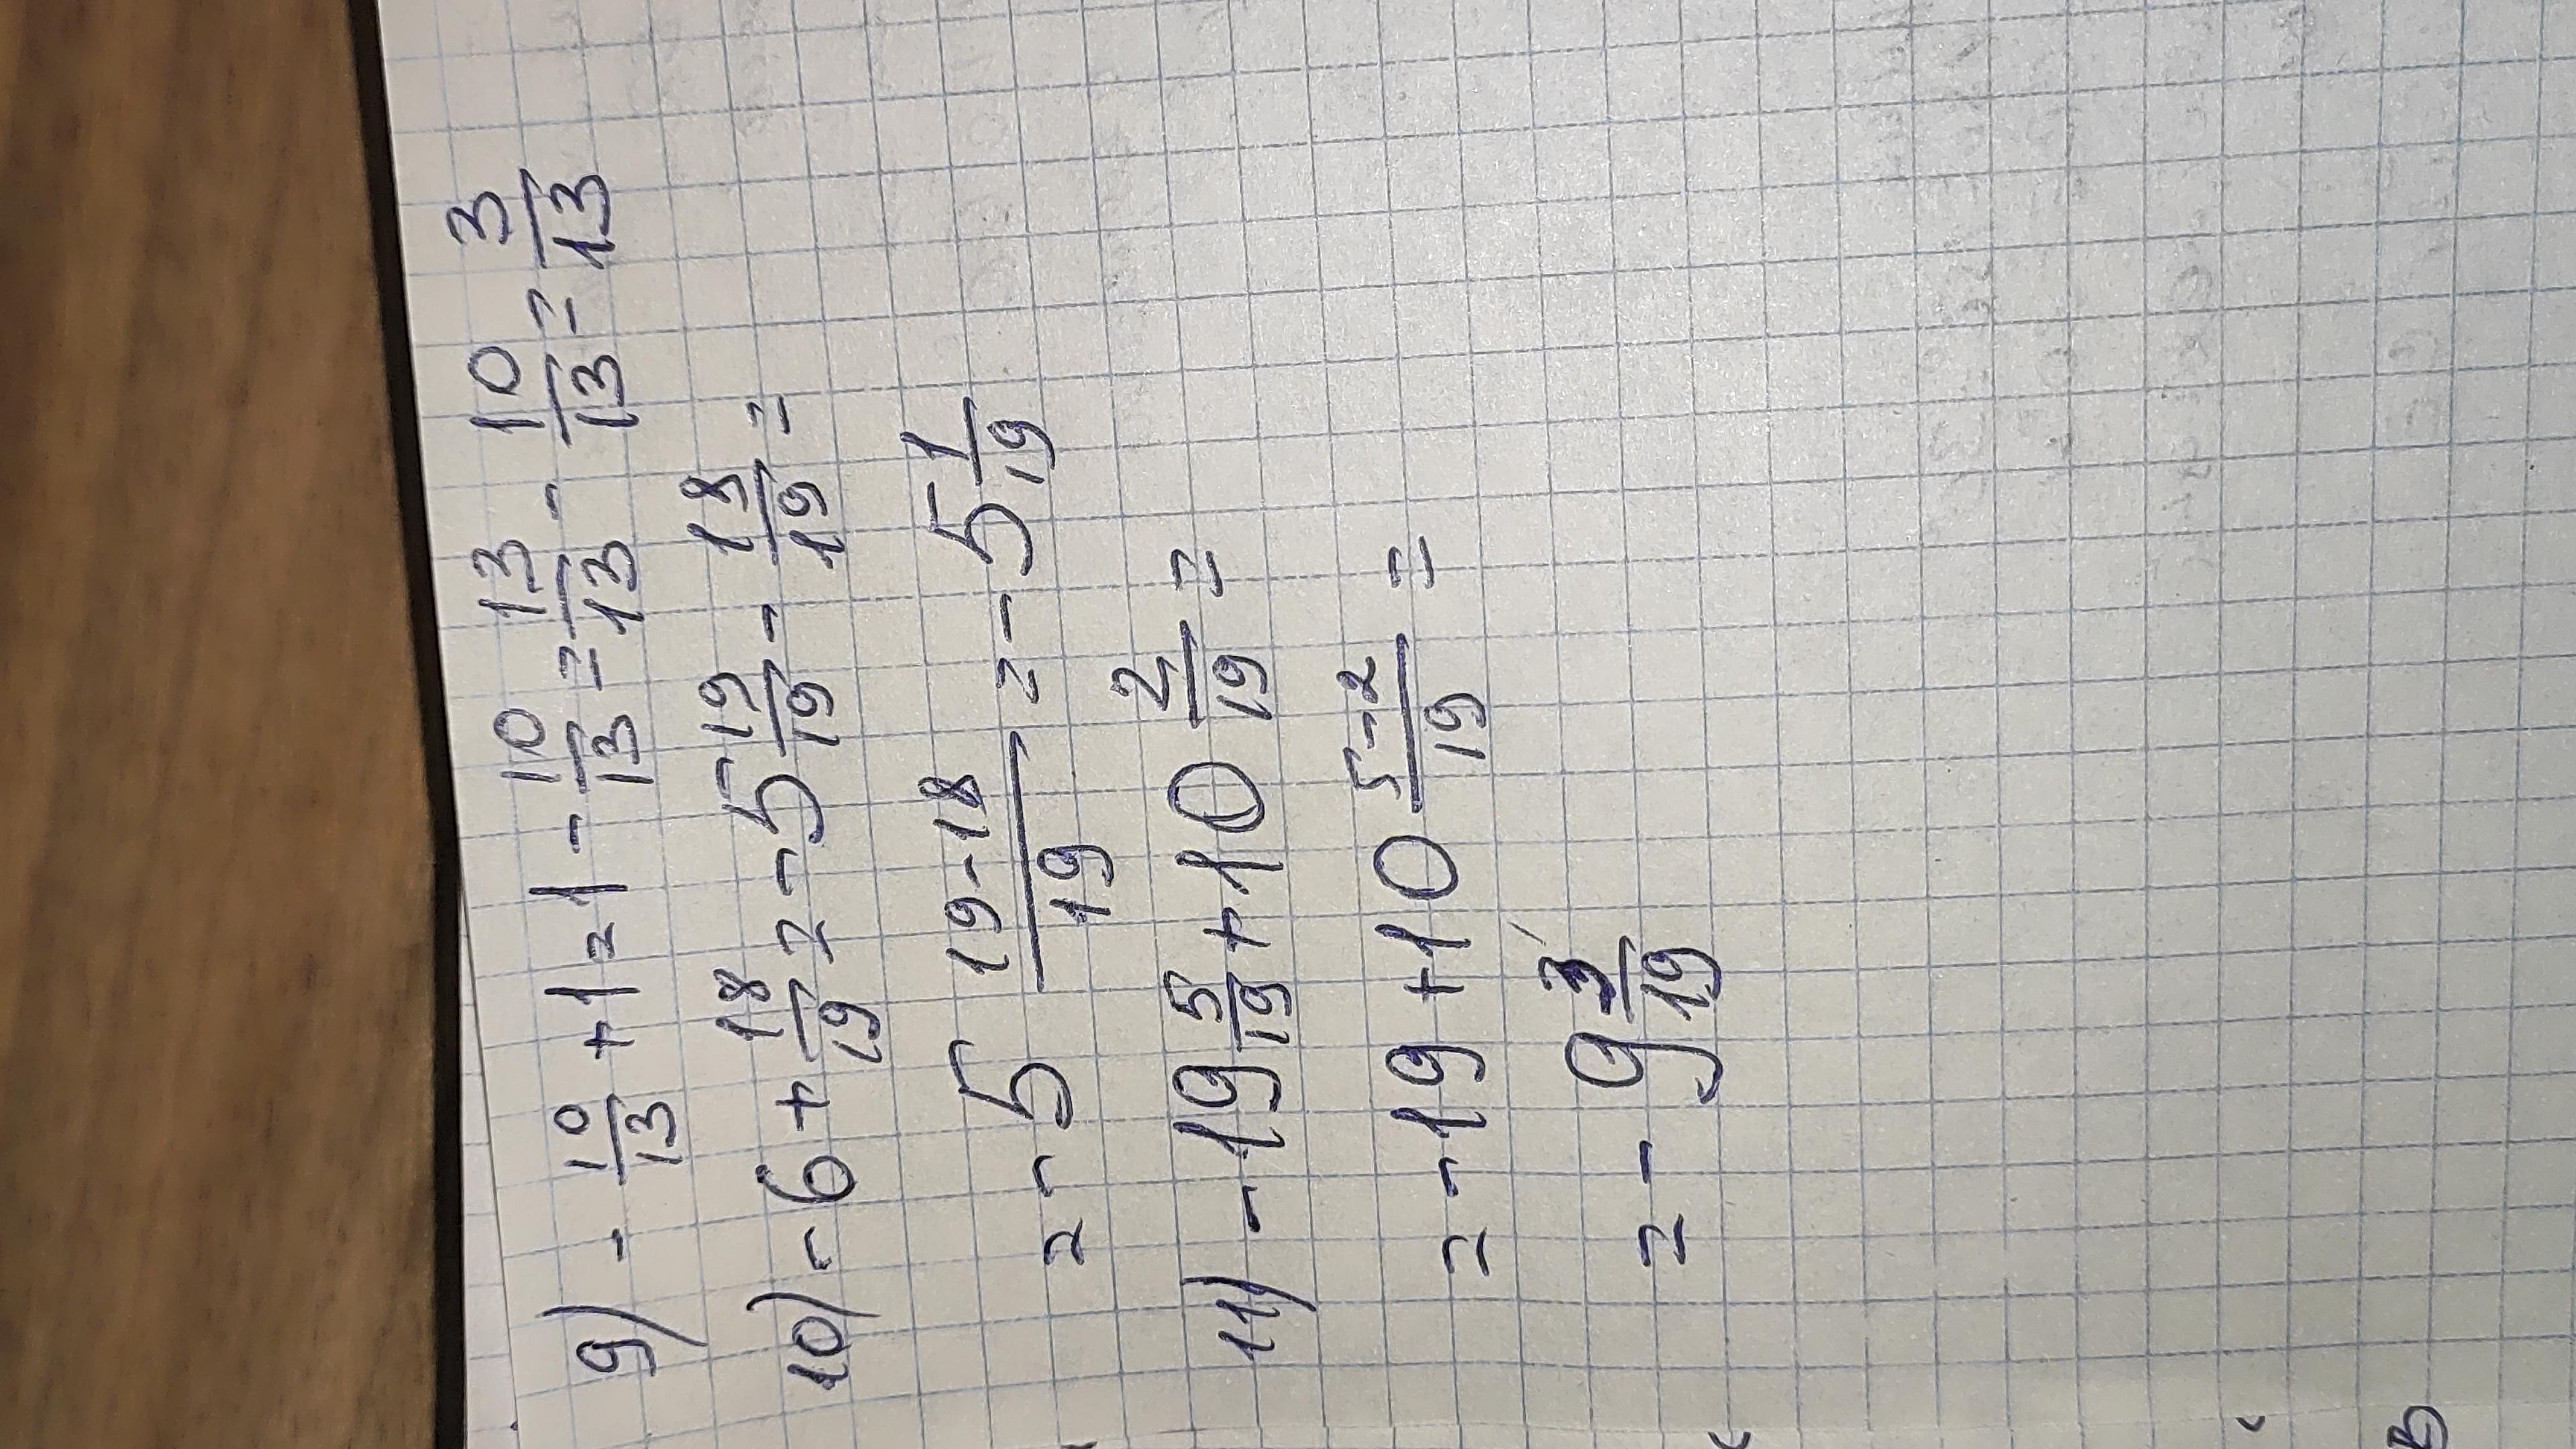 9) - 10/13 + 1 = 1 - 10/13 = 13/13 - 10/13 = 3/13
10) - 6 + 18/19 = - 5 19/19 - 18/19 =
= - 5 19-18/19 = - 5 1/19
11) - 19 5/19 + 10 2/19 =
= - 19 + 10 5-2/19 =
= - 9 3/19